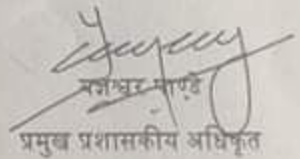 यज्ञेश्वर पाण्डे
प्रमुख प्रशासकीय अधिकृत